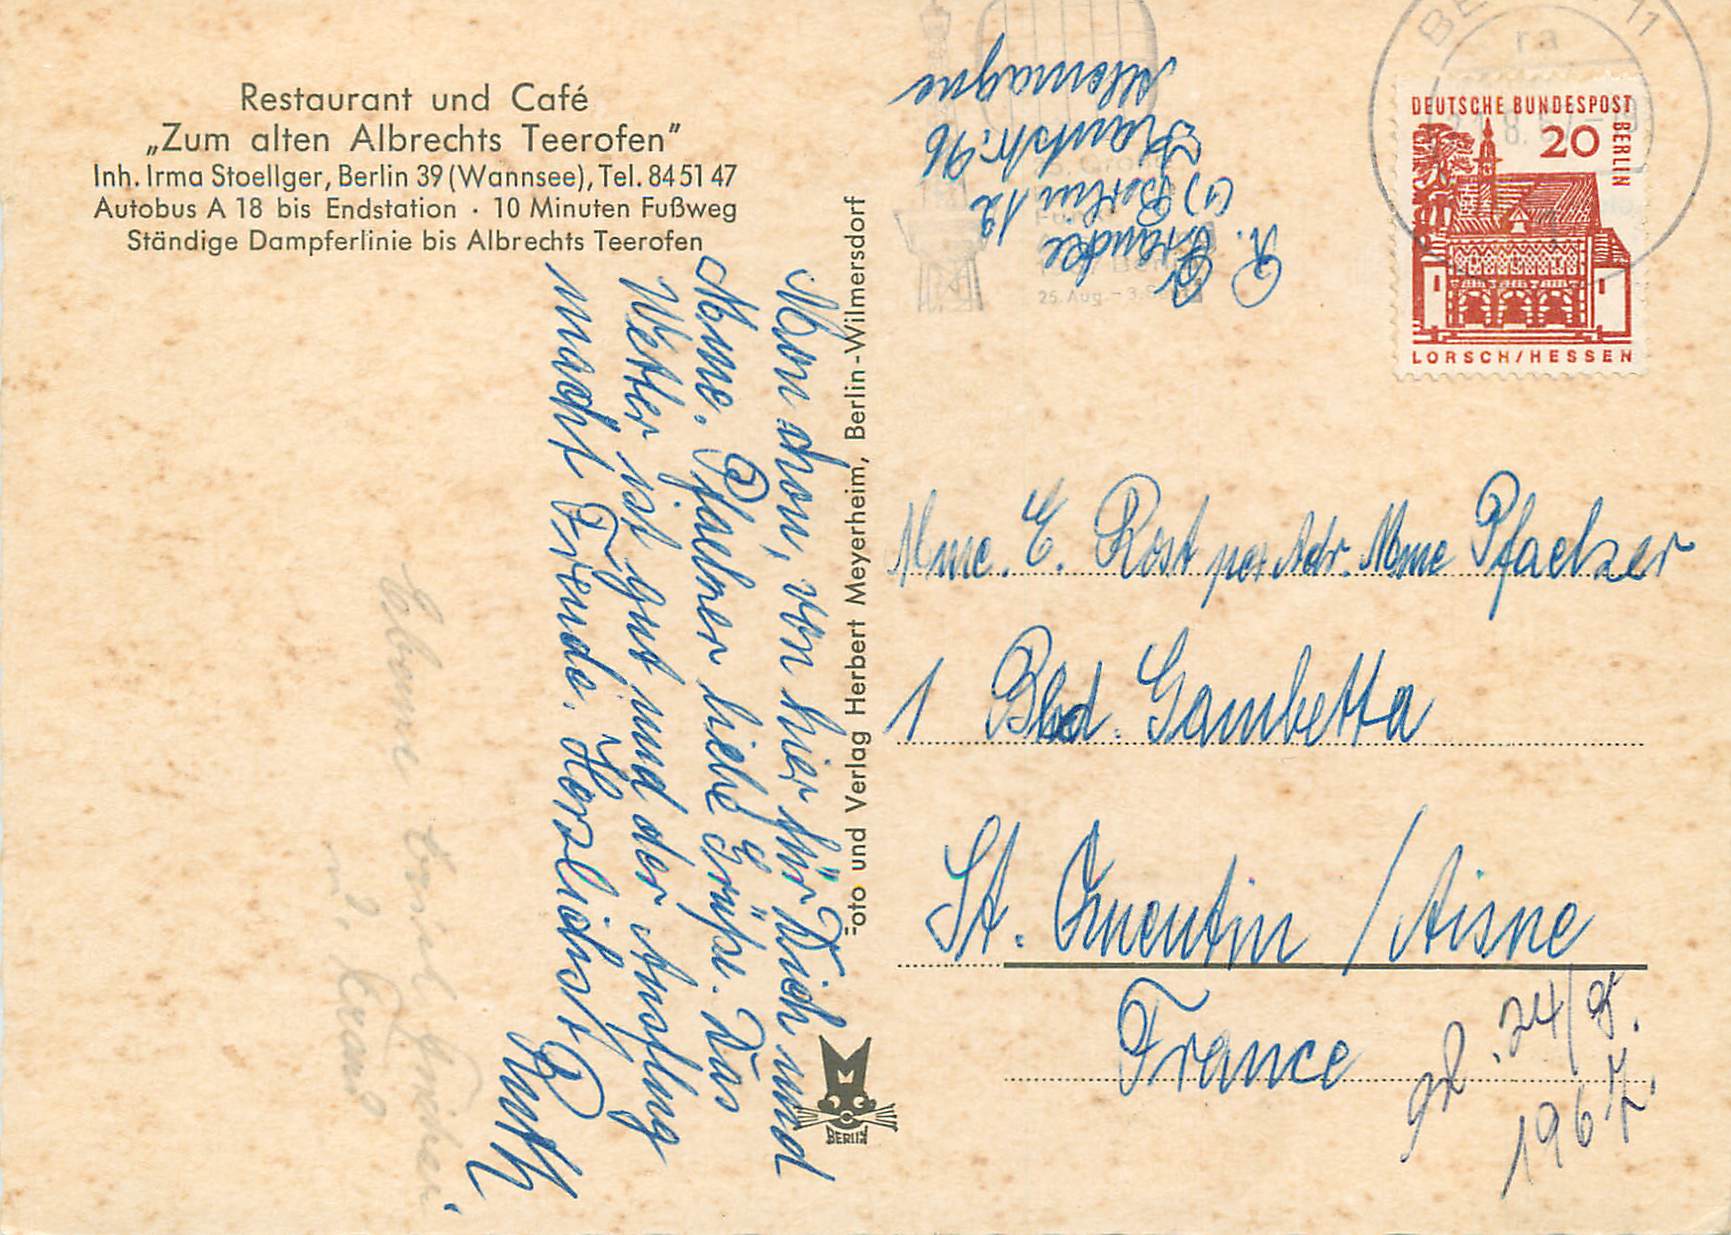 Restaurant und Café
„Zum alten Albrechts Teerofen"
Inh. Irma Stoellger, Berlin 39 (Wannsee), Tel. 84 51 47
Autobus A 18 bis Endstation · 10 Minuten Fußweg
Ständige Dampferlinie bis Albrechts Teerofen
von hier für Dich und
Mme. Pfaelzer liebe Grüße. Das
Wetter ist gut und der Ausflug
macht Freude. Herzlichst
Ruth
foto und Verlag Herbert Meyerheim, Berlin-Wilmersdorf
BERLIN
R.
(1) Berlin 12
96
Allemagne
BE 11
ra
25. Aug. - 3.
DEUTSCHE BUNDESPOST
BERLIN
20
LORSCH/HESSEN
Mme. E. Rost per Adr. Mme Pfaelzer
1 Bld. Gambetta
St. Quentin / Aisne
France
24/8.
1967.